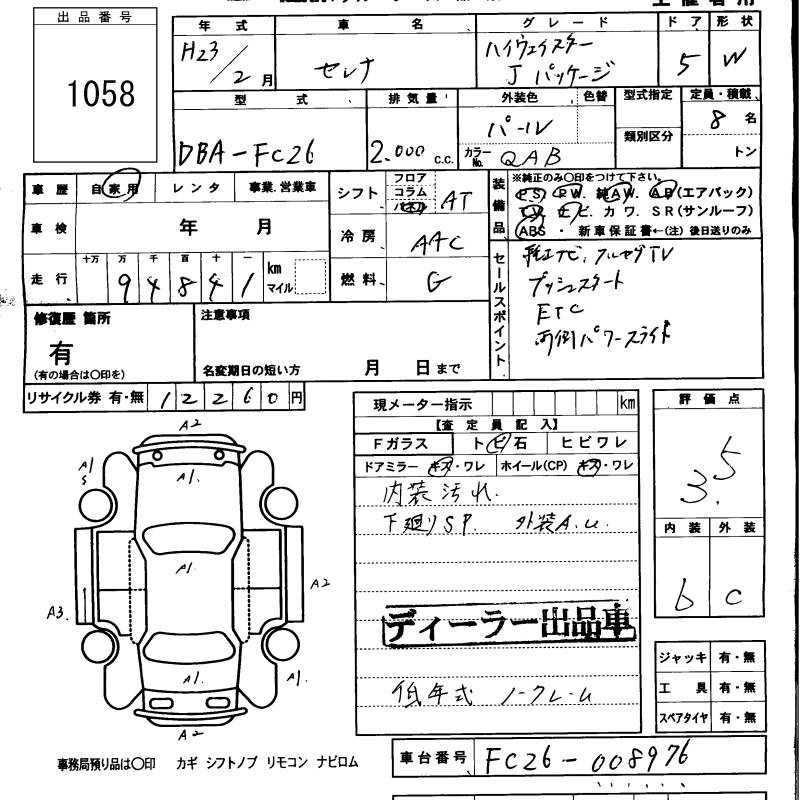 出品番号
1058
年式 車名 グレード ドア 形状
H23/2月 セレナ ハイウェイスター Jパッケージ 5 W
型式 排気量 外装色 色替 型式指定 定員・積載
DBA-FC26 2.000 c.c. パール 8名
カラーNo. QAB 類別区分 トン
車歴 自家用 レンタ 事業.営業車
シフト フロア コラム AT
装備品 ※純正のみ〇印をつけて下さい。
PS. PW. 純AW. AB(エアバック)
ビ. カワ. SR(サンルーフ)
ABS ・ 新車保証書←(注)後日送りのみ
車検 年 月
冷房 AAC
走行 十万 万 千 百 十 一
9 4 8 4 1 km マイル
燃料 G
セールスポイント
純正ナビ, フルセグTV
プッシュスタート
ETC
両側パワースライド
修復歴 箇所
有
(有の場合は〇印を)
注意事項
名変期日の短い方 月 日まで
リサイクル券 有・無 12260円
現メーター指示 km
【査定員記入】
Fガラス トビ石 ヒビワレ
ドアミラー キズ・ワレ ホイール(CP) キズ・ワレ
内装汚れ.
下廻りSP. 外装A.U.
ディーラー出品車
低年式 ノークレーム
評価点
3.5
内装 外装
b c
A2
A1 S
A1.
A1.
A2
A3.
A1
A1.
A2
ジャッキ 有・無
工具 有・無
スペアタイヤ 有・無
事務局預り品は〇印 カギ シフトノブ リモコン ナビロム
車台番号 FC26-008976